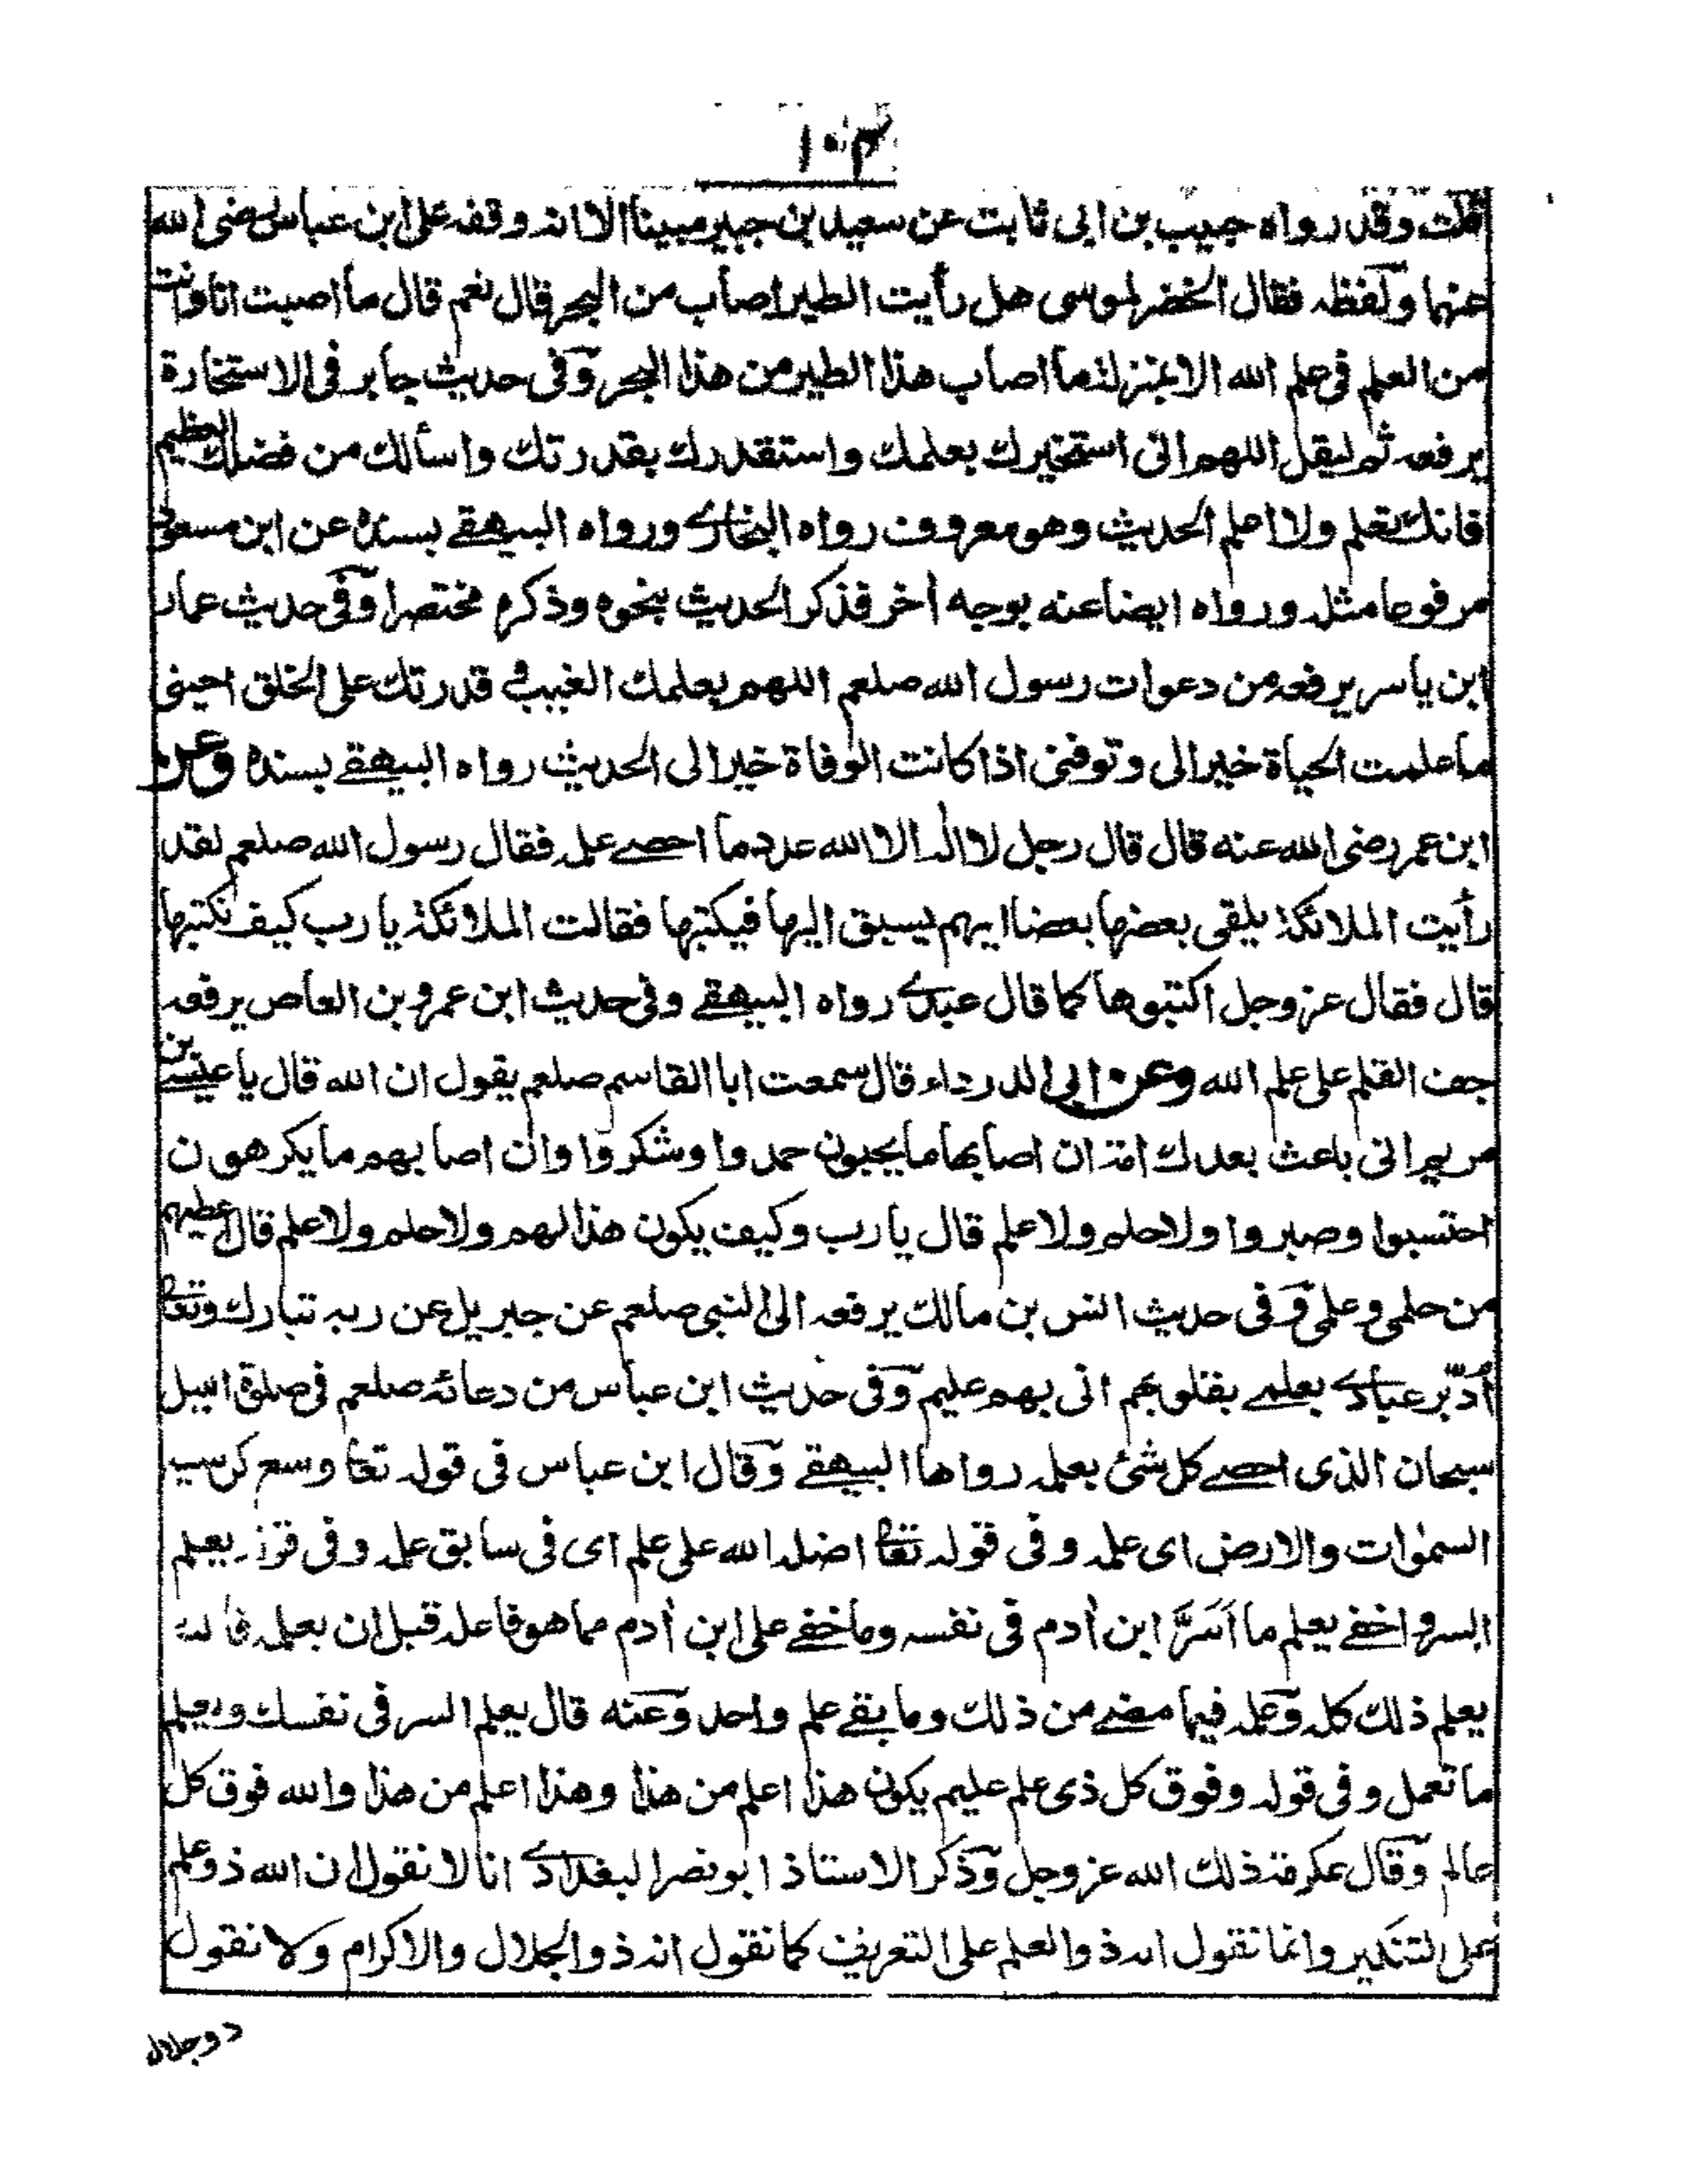 ١٠٣
قلت وقد رواه حبيب بن ابى ثابت عن سعيد بن جبير مبينا الا انه وقفه على ابن عباس رضى الله
عنهما ولفظه فقال الخضر لموسى هل رأيت الطير اصاب من البحر قال نعم قال ما اصبت انا وانت
من العلم فى علم الله الا بمنزلة ما اصاب هذا الطير من هذا البحر وفى حديث جابر فى الاستخارة
يرفعه ثم ليقل اللهم انى استخيرك بعلمك واستقدرك بقدرتك واسألك من فضلك العظيم
فانك تعلم ولا اعلم الحديث وهو معروف رواه البخارى ورواه البيهقى بسنده عن ابن مسعود
مرفوعا مثله ورواه ايضا عنه بوجه أخر فذكر الحديث بنحوه وذكره مختصرا وفى حديث عمار
ابن ياسر يرفعه من دعوات رسول الله صلعم اللهم بعلمك الغيب فى قدرتك على الخلق احينى
ما علمت الحياة خيرا لى وتوفنى اذا كانت الوفاة خيرا لى الحديث رواه البيهقى بسنده وعن
ابن عمر رضى الله عنه قال قال رجل لا اله الا الله عدد ما احصى علمه فقال رسول الله صلعم لقد
رأيت الملائكة يلقى بعضها بعضا ايهم يسبق اليها فيكتبها فقالت الملائكة يا رب كيف نكتبها
قال فقال عز وجل اكتبوها كما قال عبدى رواه البيهقى وفى حديث ابن عمرو بن العاص يرفعه
جف القلم على علم الله وعن ابى الدرداء قال سمعت ابا القاسم صلعم يقول ان الله قال يا عيسى بن
مريم انى باعث بعدك امة ان اصابها ما يحبون حمدوا وشكروا وان اصابهم ما يكرهون
احتسبوا وصبروا ولا حلم ولا علم قال يا رب وكيف يكون هذا لهم ولا حلم ولا علم قال اعطيهم
من حلمى وعلمى وفى حديث انس بن مالك يرفعه الى النبى صلعم عن جبريل عن ربه تبارك وتعالى
أدبّر عبادى بعلمى بقلوبهم انى بهم عليم وفى حديث ابن عباس من دعائه صلعم فى صلوة الليل
سبحان الذى احصى كل شئ بعلمه رواها البيهقى وقال ابن عباس فى قوله تعا وسع كرسيه
السمٰوات والارض اى علمه وفى قوله تعالى اضله الله على علم اى فى سابق علمه وفى قوله يعلم
السر واخفى يعلم ما أسَرَّ ابن أدم فى نفسه وما خفى على ابن أدم مما هو فاعله قبل ان يعمله فالله
يعلم ذلك كله وعلمه فيما مضى من ذلك وما بقى علم واحد وعنه قال يعلم السر فى نفسك ويعلم
ما تعمل وفى قوله وفوق كل ذى علم عليم يكون هذا اعلم من هذا وهذا اعلم من هذا والله فوق كل
عالم وقال عكرمة ذلك الله عز وجل وذكر الاستاذ ابو نصر البغدادى انا لا نقول ان الله ذو علم
على التنكير وانما نقول انه ذو العلم على التعريف كما نقول انه ذو الجلال والاكرام ولا نقول
ذو جلال